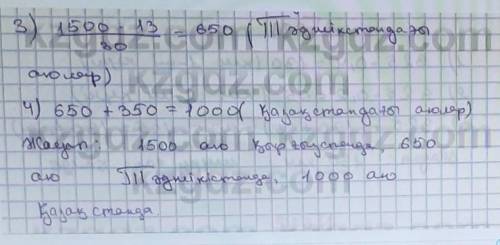 3) 1500 · 13 / 30 = 650 (Тәджікстандағы
аюлар)
4) 650 + 350 = 1000 (Қазақстандағы аюлар)
Жауап: 1500 аю Қырғызстанда, 650
аю Тәджікістанда, 1000 аю
Қазақстанда